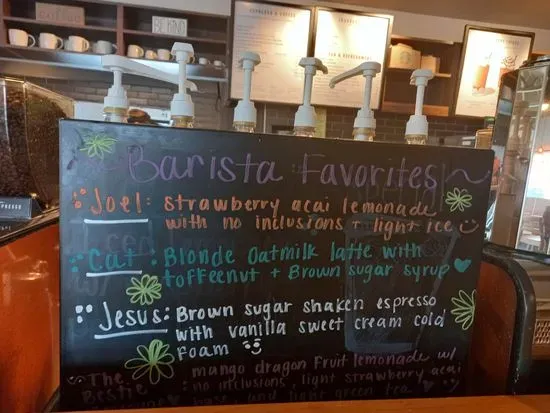 coffee
BE KIND
ESPRESSO & COFFEE
~ Barista Favorites ~
Joel: strawberry acai lemonade
with no inclusions + light ice
Cat: Blonde Oatmilk latte with
toffeenut + Brown sugar syrup
Jesus: Brown sugar shaken espresso
with vanilla sweet cream cold
foam
The Bestie: mango dragon fruit lemonade w/
no inclusions, light strawberry acai
base, and light green tea
PRESSO